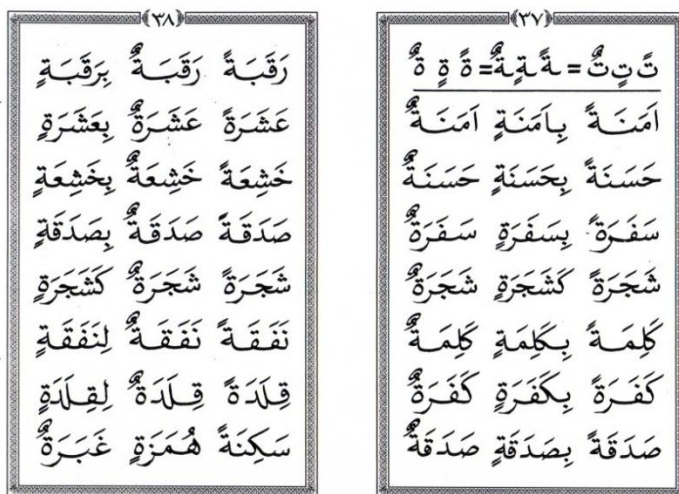 ٣٧
تً تٍ تٌ = ـةً ـةٍ ـةٌ = ةً ةٍ ةٌ
اَمَنَـةً بِـاَمَنَةٍ اَمَنَـةٌ
حَسَنَةً بِحَسَنَةٍ حَسَنَةٌ
سَفَـرَةً بِسَفَرَةٍ سَفَـرَةٌ
شَجَرَةً كَشَجَرَةٍ شَجَرَةٌ
كَلِمَـةً بِـكَلِمَةٍ كَلِمَـةٌ
كَفَـرَةً بِكَفَرَةٍ كَفَـرَةٌ
صَدَقَةً بِصَدَقَةٍ صَدَقَةٌ
٣٨
رَقَبَـةً رَقَبَـةٌ بِرَقَبَـةٍ
عَشَـرَةً عَشَـرَةٌ بِعَشَـرَةٍ
خَشِعَةً خَشِعَةٌ بِخَشِعَةٍ
صَدَقَـةً صَدَقَـةٌ بِصَدَقَةٍ
شَجَرَةً شَجَرَةٌ كَشَجَرَةٍ
نَفَقَـةً نَفَقَـةٌ لِنَفَقَةٍ
قِـلَدَةً قِـلَدَةٌ لِقِلَدَةٍ
سَكِنَةً هُمَزَةٍ غَبَرَةٌ